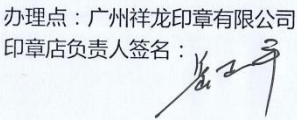 办理点：广州祥龙印章有限公司
印章店负责人签名：